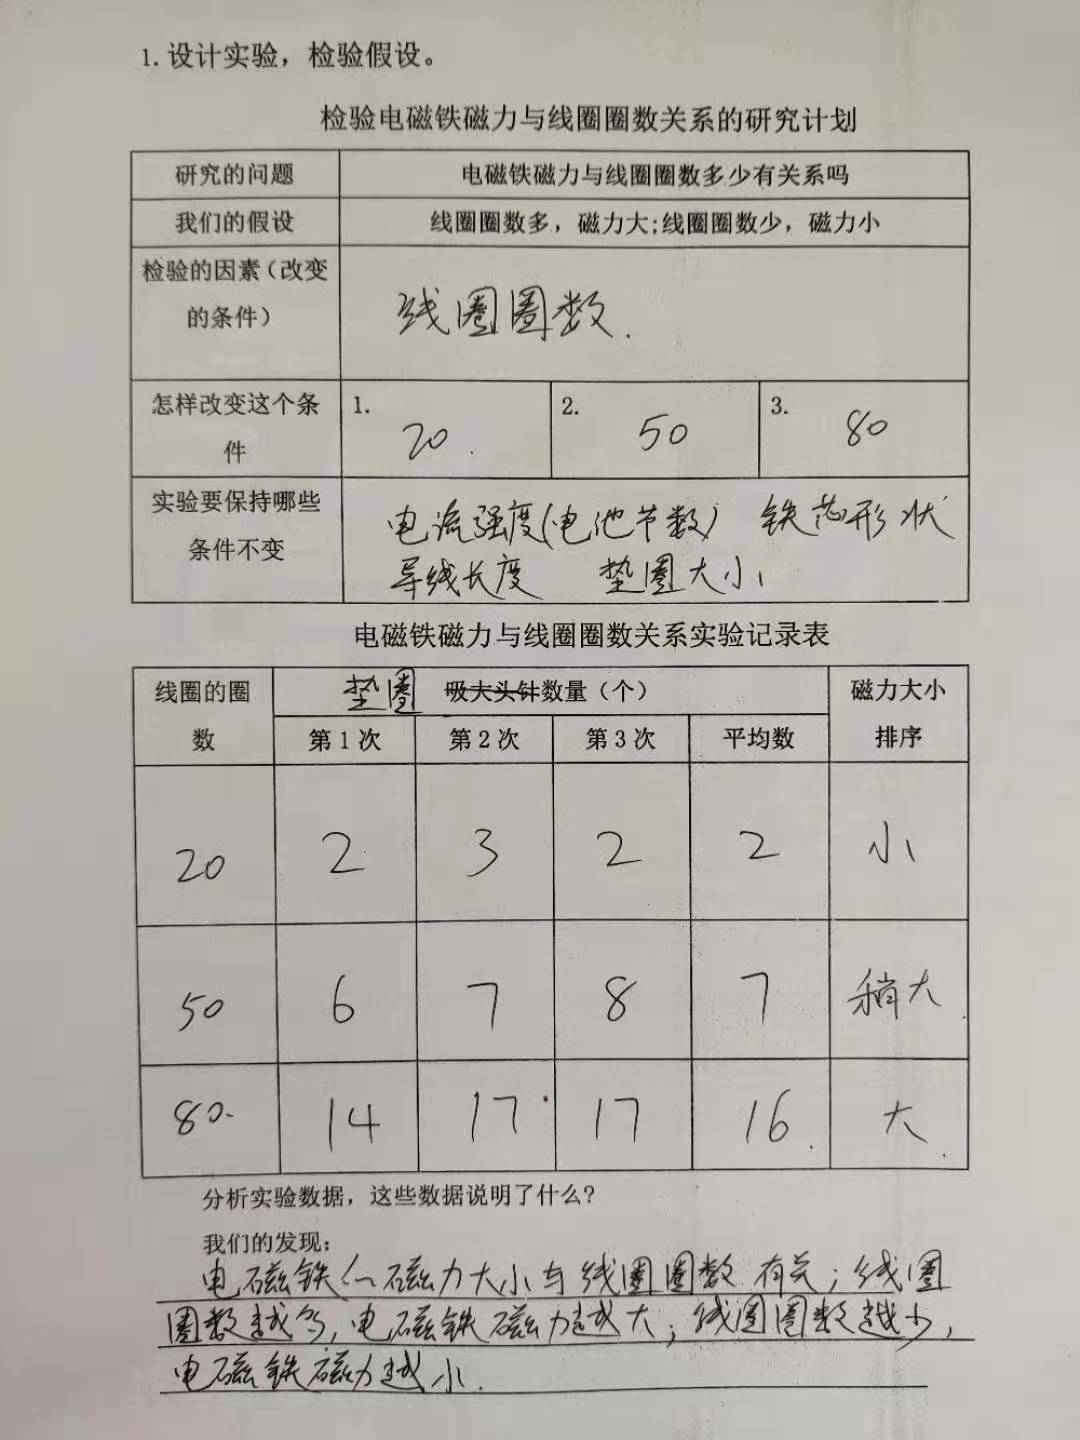 1. 设计实验，检验假设。
检验电磁铁磁力与线圈圈数关系的研究计划
研究的问题 电磁铁磁力与线圈圈数多少有关系吗
我们的假设 线圈圈数多，磁力大;线圈圈数少，磁力小
检验的因素（改变
的条件） 线圈圈数.
怎样改变这个条
件 1. 20. 2. 50 3. 80
实验要保持哪些
条件不变 电流强度(电池节数) 铁芯形状
导线长度 垫圈大小
电磁铁磁力与线圈圈数关系实验记录表
线圈的圈
数 垫圈 吸大头针数量（个） 磁力大小
排序
第 1 次 第 2 次 第 3 次 平均数
20 2 3 2 2 小
50 6 7 8 7 稍大
80. 14 17 17 16. 大.
分析实验数据，这些数据说明了什么?
我们的发现:
电磁铁的磁力大小与线圈圈数有关；线圈
圈数越多，电磁铁磁力越大；线圈圈数越少，
电磁铁磁力越小.